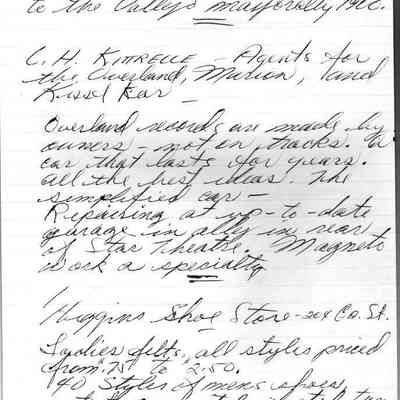 to the Valley's
C. H. Kittrelle - Agents for
the Overland, Marion, and
Kissel Kar -
Overland records are made by
owners - not on tracks. A
car that lasts for years.
all the best ideas. The
simplified car -
Repairing at up-to-date
garage in ally in rear
of Star Theatre. Magneto
work a specialty
Higgins Shoe Store - 204 Co. St.
Ladies felts, all styles priced
from .75 to 2.50.
40 Styles of mens shoes,